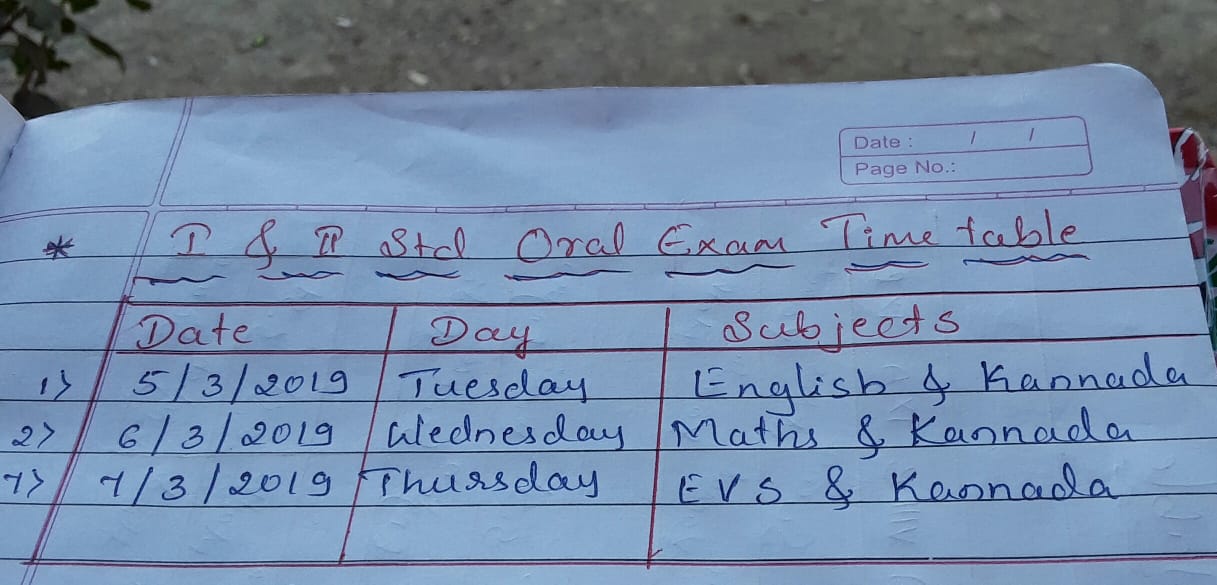 Date : / /
Page No.:
* I & II Std Oral Exam Time table
Date Day Subjects
1) 5/3/2019 Tuesday English & Kannada
2) 6/3/2019 Wednesday Maths & Kannada
7) 7/3/2019 Thursday EVS & Kannada